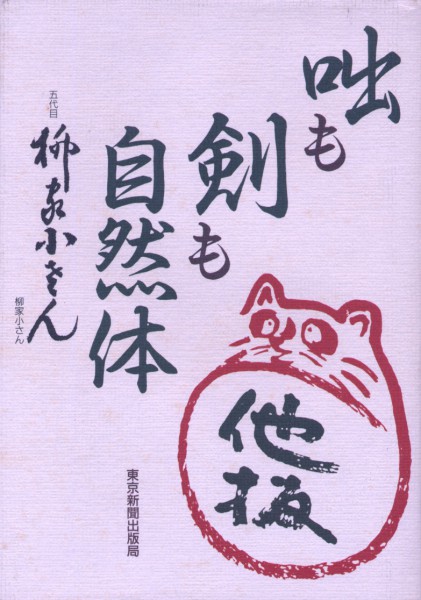 咄も
剣も
自然体
五代目
柳家小さん
柳家小さん
他抜
東京新聞出版局